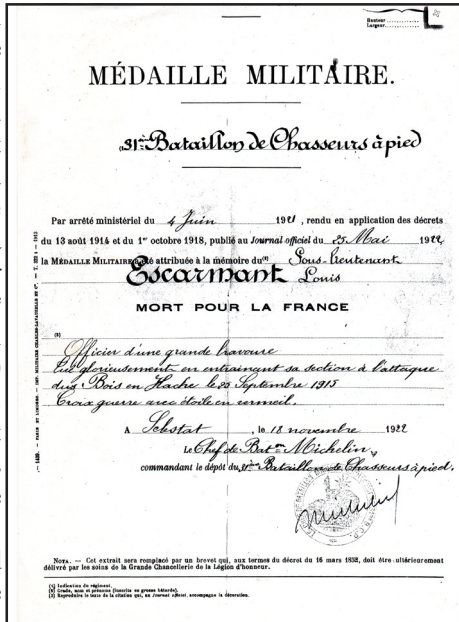 Hauteur
Largeur
MÉDAILLE MILITAIRE.
(1) 31ème Bataillon de Chasseurs à pied
Par arrêté ministériel du 4 Juin 1921, rendu en application des décrets
du 13 août 1914 et du 1er octobre 1918, publié au Journal officiel du 25 Mai 1922
la MÉDAILLE MILITAIRE a été attribuée à la mémoire du (2) Sous-lieutenant
Escarmant Louis
MORT POUR LA FRANCE
(3)
Officier d'une grande bravoure
Tué glorieusement en entraînant sa section à l'attaque
du Bois en Hache le 20 Septembre 1915
Croix guerre avec étoile en vermeil.
A Selestat, le 18 novembre 1922
Le Chef de Baton Michelin,
commandant le dépôt du 31ème Bataillon de Chasseurs à pied.
NOTA. — Cet extrait sera remplacé par un brevet qui, aux termes du décret du 16 mars 1852, doit être ultérieurement
délivré par les soins de la Grande Chancellerie de la Légion d'honneur.
(1) Indication du régiment.
(2) Grade, nom et prénoms (inscrits en grosse bâtarde).
(3) Reproduire le texte de la citation qui, au Journal officiel, accompagne la décoration.